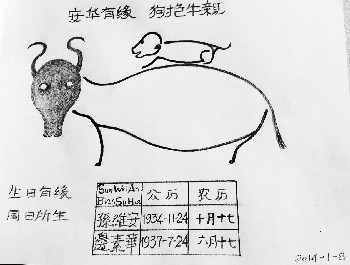 安华有缘 狗抱牛親
生日有缘
同日所生
SunWeiAn
BianSuHua
公历 农历
孫維安 1934-11-24 十月十七
邊素華 1937-7-24 六月十七
2014-1-8